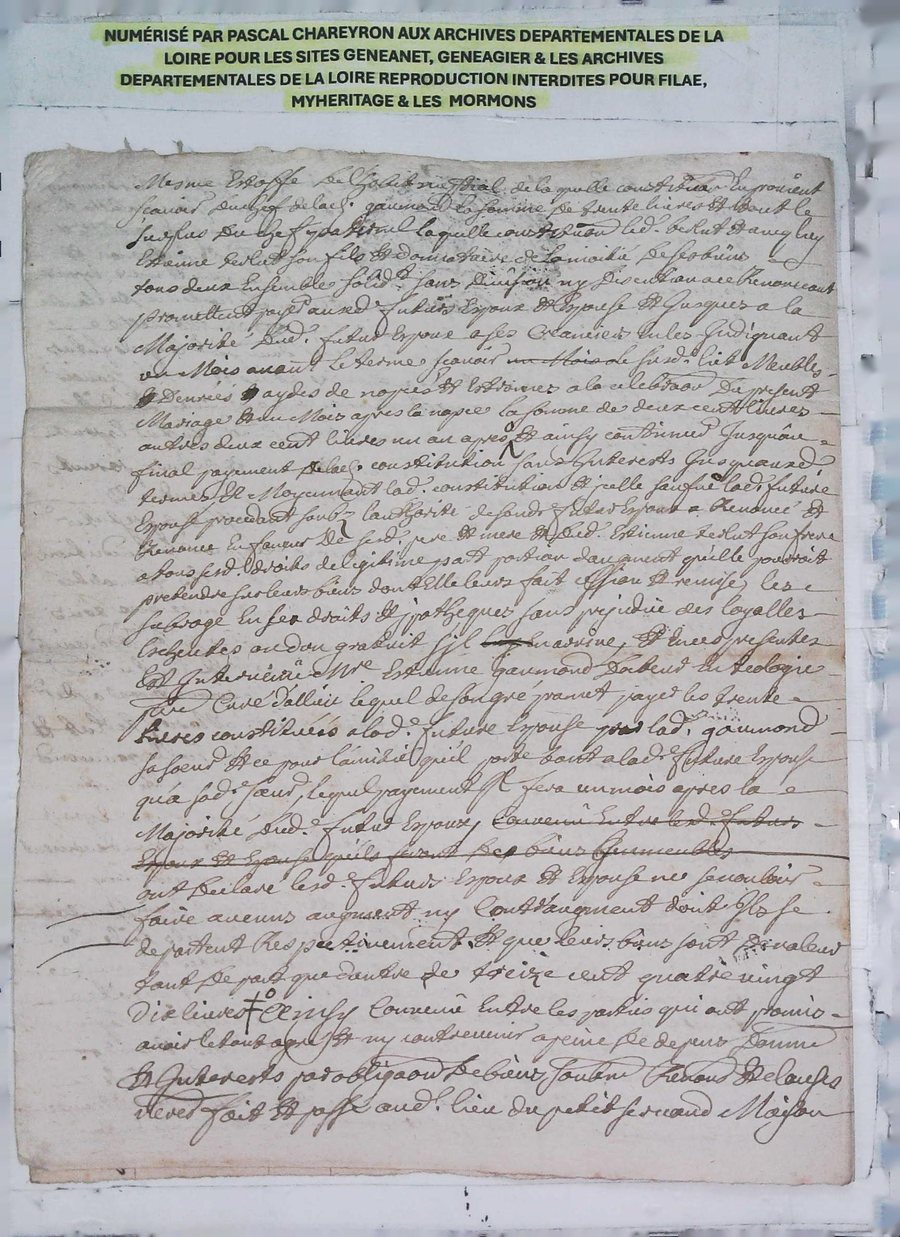 NUMÉRISÉ PAR PASCAL CHAREYRON AUX ARCHIVES DEPARTEMENTALES DE LA
LOIRE POUR LES SITES GENEANET, GENEAGIER & LES ARCHIVES
DEPARTEMENTALES DE LA LOIRE REPRODUCTION INTERDITES POUR FILAE,
MYHERITAGE & LES MORMONS
Mesme Estoffe de la quelle constitution En provient
scavoir du chef de lad. gaumond la somme de trente livres Et tout le
surplus du chef paternel laquelle constitution led. Et
Estienne son fils Et donnataire de la moitié de ses biens
tous deux Ensembles solid.t sans division ny discution a ce Renonceant
promettent payer ausd. futurs Espoux Et Espouse Et Jusques a la
Majorité dud. futur Espoux a ses Creanciers en les Indiquant
un Mois avant le terme scavoir lesusd. lict Meubles
Et denrées Et aydes de nopces Et Estrennes a la celebraon du present
Mariage Et un Mois apres la nopce la somme de deux cent livres
autres deux cent livres un an apres Et ainsy continuer Jusqu'au
final payement de lad. constitution sans Interests Jusqu'ausd.
termes Et Moyennant lad. constitution Et icelle sauf lad. future
Espouse procedant soubz l'authorité de sond. futur Espoux a Renoncé Et
Renonce En faveur de sesd. pere Et mere Et dud. Estienne son frere
a tous sesd. droits de legitime part portion d'augment qu'elle pourroit
pretendre sur leurs biens dont Elle leurs fait cession Et remise, les
subroge En ses droits Et ypotheques sans prejudice des loyalles
Escheutes ou don gratuit s'jl En arrive, Et En ces presentes
Est Intervenu Mre Estienne gaumond Docteur En teologie
Curé d'allieu lequel de son gre promet payer les trente
livres constituées a lad. future Espouse par lad. gaumond
sa soeur Et ce pour l'amitié qu'il porte tant a lad. future Espouse
qu'a sad. soeur, lequel payement jl fera un mois apres la
Majorité dud. futur Espoux, Convenu Entre lesd. futurs
Espoux Et Espouse qu'ils des biens Immeubles
ont Declaré lesd. futurs Espoux Et Espouse ne se vouloir
faire aucuns augment ny Contraugment dont Ils se
departent Respectivement Et que leurs biens sont de valeur
tant de part que d'autre de treize cent quatre vingt
Dix livres Ainsy Convenu Entre les parties qui ont promis
avoir le tout agreable Et ny contrevenir a peine de depens Dommé
Et Interests par obligaon de biens, soubm. Renond. Et clauses
fait Et passé aud. lieu du petit Maison